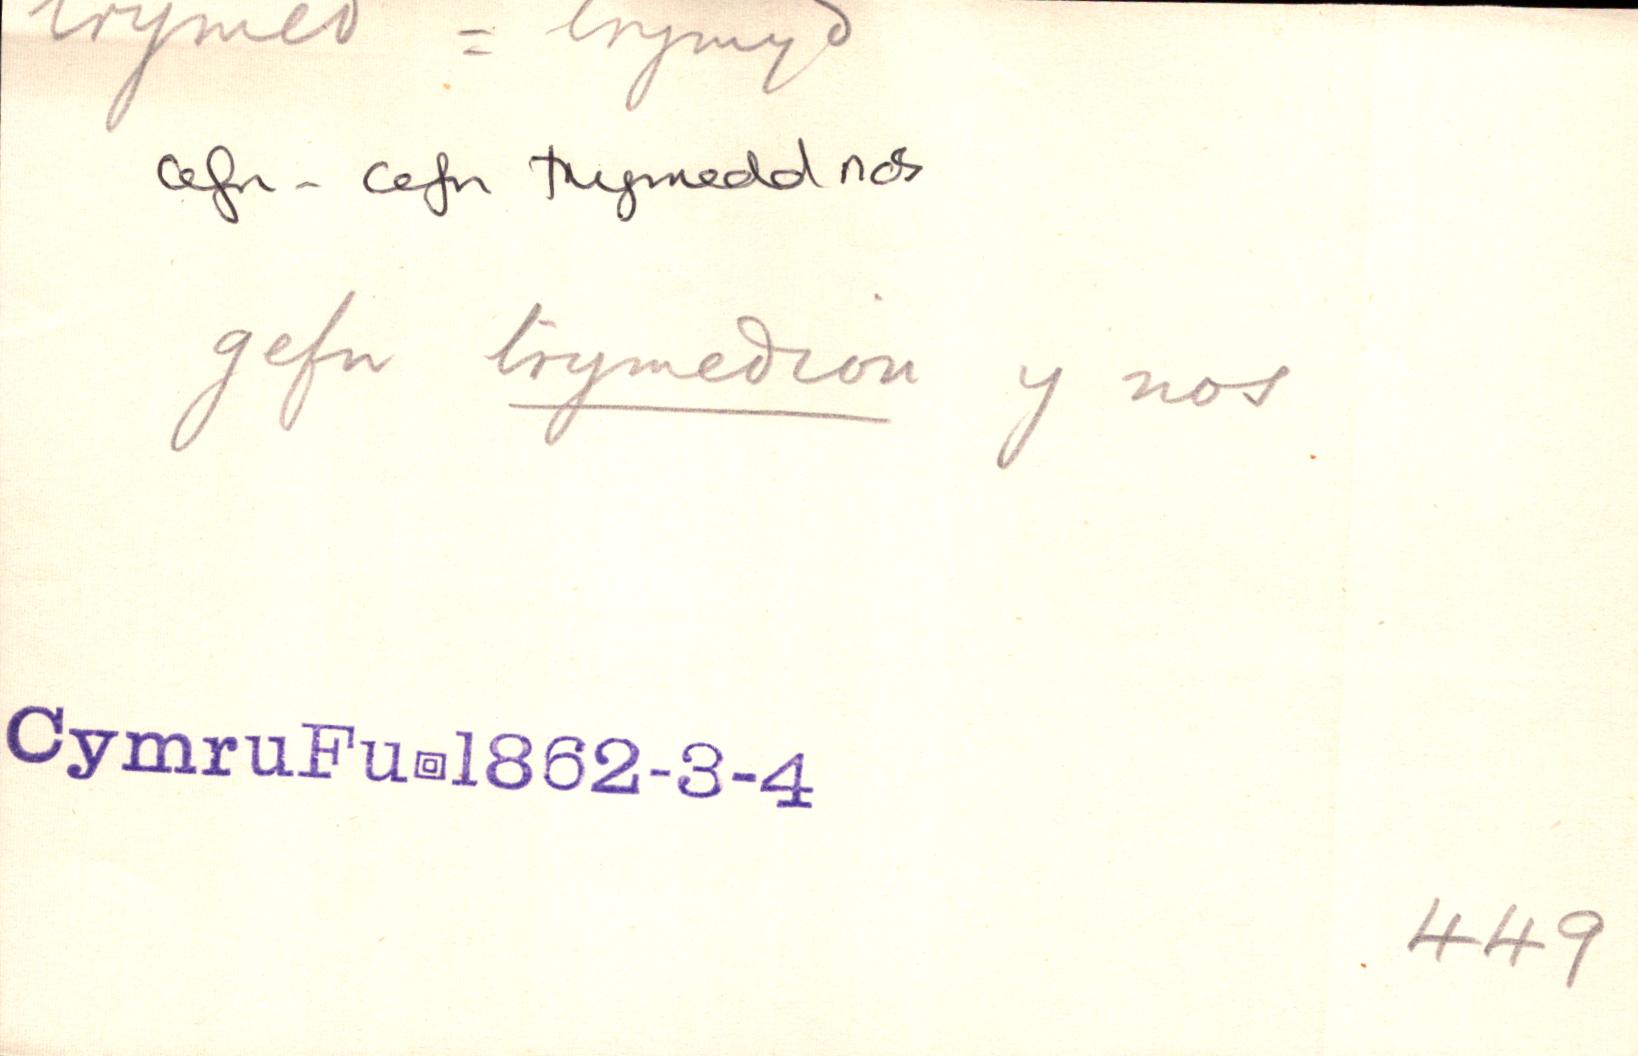 trymeδ = trymyδ
cefn - cefn trymedd nos
gefn trymeδion y nos
CymruFu▣1862-3-4
449